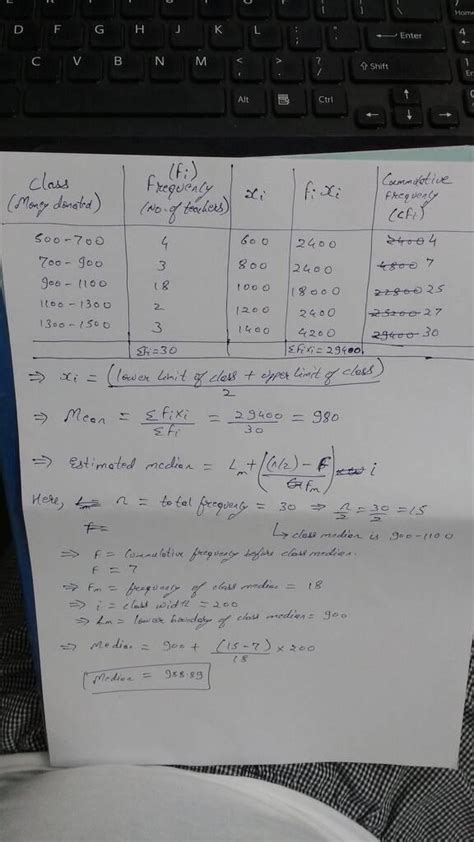 D F G H J K L : " Enter 4
C V B N M < , > . ? / Shift 1
End
Alt Ctrl
Class (Money donated) (fi) Frequency (No. of teachers) xi fi xi Cummulative frequency (cfi)
500-700 4 600 2400 2400 4
700-900 3 800 2400 4800 7
900-1100 18 1000 18000 22800 25
1100-1300 2 1200 2400 25200 27
1300-1500 3 1400 4200 29400 30
Σfi=30 Σfixi=29400
⇒ xi = (lower limit of class + upper limit of class)/2
⇒ Mean = Σfixi/Σfi = 29400/30 = 980
⇒ Estimated median = Lm + ((n/2) - F/fm) i
Here, n = total frequency = 30 ⇒ n/2 = 30/2 = 15
F= ↳ class median is 900-1100
⇒ F = Cummulative frequency before class median.
F = 7
⇒ Fm = frequency of class median = 18
⇒ i = class width = 200
⇒ Lm = lower boundary of class median = 900
⇒ Median = 900 + (15-7)/18 × 200
Median = 988.89